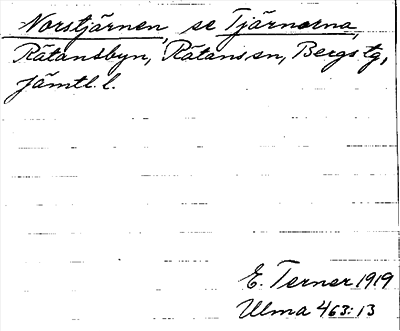 Norstjärnen, se Tjärnarna,
Rätansbyn, Rätans sn, Bergs tg,
Jämtl. l.
E. Terner 1919
Ulma 463:13